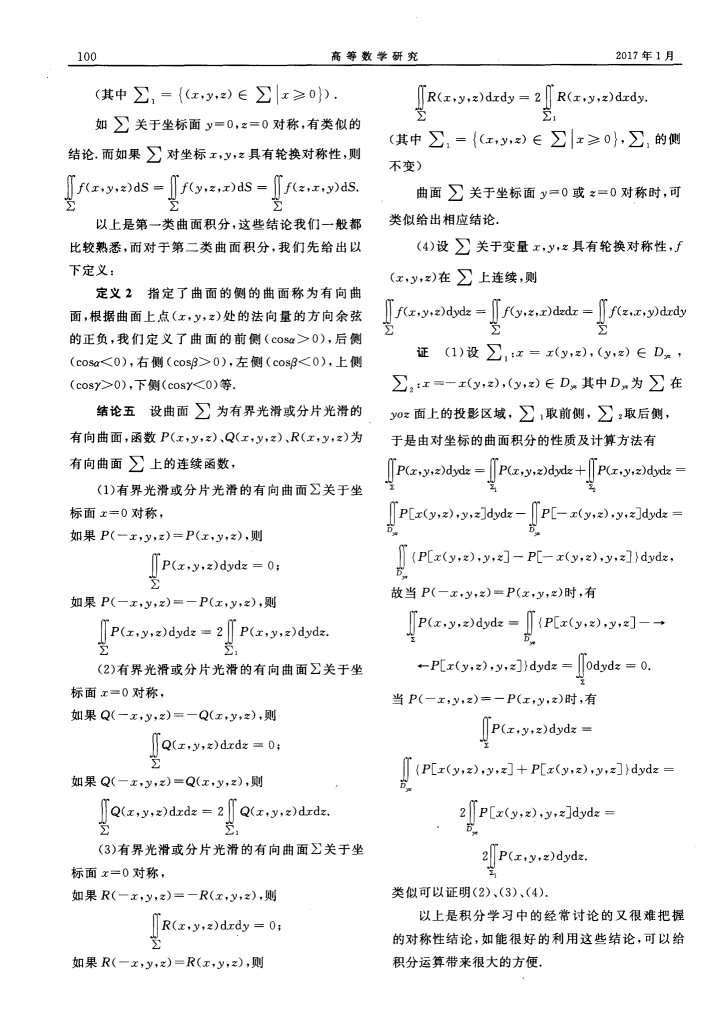 100
高等数学研究
2017年1月
(其中 ∑₁ = {(x,y,z) ∈ ∑ | x ≥ 0}).
如 ∑ 关于坐标面 y=0,z=0 对称,有类似的
结论.而如果 ∑ 对坐标 x,y,z 具有轮换对称性,则
∬_∑ f(x,y,z)dS = ∬_∑ f(y,z,x)dS = ∬_∑ f(z,x,y)dS.
以上是第一类曲面积分,这些结论我们一般都
比较熟悉,而对于第二类曲面积分,我们先给出以
下定义:
定义2 指定了曲面的侧的曲面称为有向曲
面,根据曲面上点(x,y,z)处的法向量的方向余弦
的正负,我们定义了曲面的前侧(cosα>0),后侧
(cosα<0),右侧(cosβ>0),左侧(cosβ<0),上侧
(cosγ>0),下侧(cosγ<0)等.
结论五 设曲面 ∑ 为有界光滑或分片光滑的
有向曲面,函数 P(x,y,z)、Q(x,y,z)、R(x,y,z)为
有向曲面 ∑ 上的连续函数,
(1)有界光滑或分片光滑的有向曲面∑关于坐
标面 x=0 对称,
如果 P(-x,y,z)=P(x,y,z),则
∬_∑ P(x,y,z)dydz = 0;
如果 P(-x,y,z)=-P(x,y,z),则
∬_∑ P(x,y,z)dydz = 2∬_∑₁ P(x,y,z)dydz.
(2)有界光滑或分片光滑的有向曲面∑关于坐
标面 x=0 对称,
如果 Q(-x,y,z)=-Q(x,y,z),则
∬_∑ Q(x,y,z)dxdz = 0;
如果 Q(-x,y,z)=Q(x,y,z),则
∬_∑ Q(x,y,z)dxdz = 2∬_∑₁ Q(x,y,z)dxdz.
(3)有界光滑或分片光滑的有向曲面∑关于坐
标面 x=0 对称,
如果 R(-x,y,z)=-R(x,y,z),则
∬_∑ R(x,y,z)dxdy = 0;
如果 R(-x,y,z)=R(x,y,z),则
∬_∑ R(x,y,z)dxdy = 2∬_∑₁ R(x,y,z)dxdy.
(其中 ∑₁ = {(x,y,z) ∈ ∑ | x ≥ 0},∑₁ 的侧
不变)
曲面 ∑ 关于坐标面 y=0 或 z=0 对称时,可
类似给出相应结论.
(4)设 ∑ 关于变量 x,y,z 具有轮换对称性,f
(x,y,z)在 ∑ 上连续,则
∬_∑ f(x,y,z)dydz = ∬_∑ f(y,z,x)dzdx = ∬_∑ f(z,x,y)dxdy
证 (1)设 ∑₁:x = x(y,z),(y,z) ∈ D_yz ,
∑₂:x =-x(y,z),(y,z) ∈ D_yz 其中D_yz为 ∑ 在
yoz 面上的投影区域, ∑₁取前侧, ∑₂取后侧,
于是由对坐标的曲面积分的性质及计算方法有
∬_∑ P(x,y,z)dydz = ∬_∑₁ P(x,y,z)dydz+∬_∑₂ P(x,y,z)dydz =
∬_D_yz P[x(y,z),y,z]dydz - ∬_D_yz P[-x(y,z),y,z]dydz =
∬_D_yz {P[x(y,z),y,z]-P[-x(y,z),y,z]}dydz,
故当 P(-x,y,z)=P(x,y,z)时,有
∬_∑ P(x,y,z)dydz = ∬_D_yz {P[x(y,z),y,z]-→
←P[x(y,z),y,z]}dydz = ∬_∑ 0dydz = 0.
当 P(-x,y,z)=-P(x,y,z)时,有
∬_∑ P(x,y,z)dydz =
∬_D_yz {P[x(y,z),y,z]+P[x(y,z),y,z]}dydz =
2∬_D_yz P[x(y,z),y,z]dydz =
2∬_∑₁ P(x,y,z)dydz.
类似可以证明(2)、(3)、(4).
以上是积分学习中的经常讨论的又很难把握
的对称性结论,如能很好的利用这些结论,可以给
积分运算带来很大的方便.